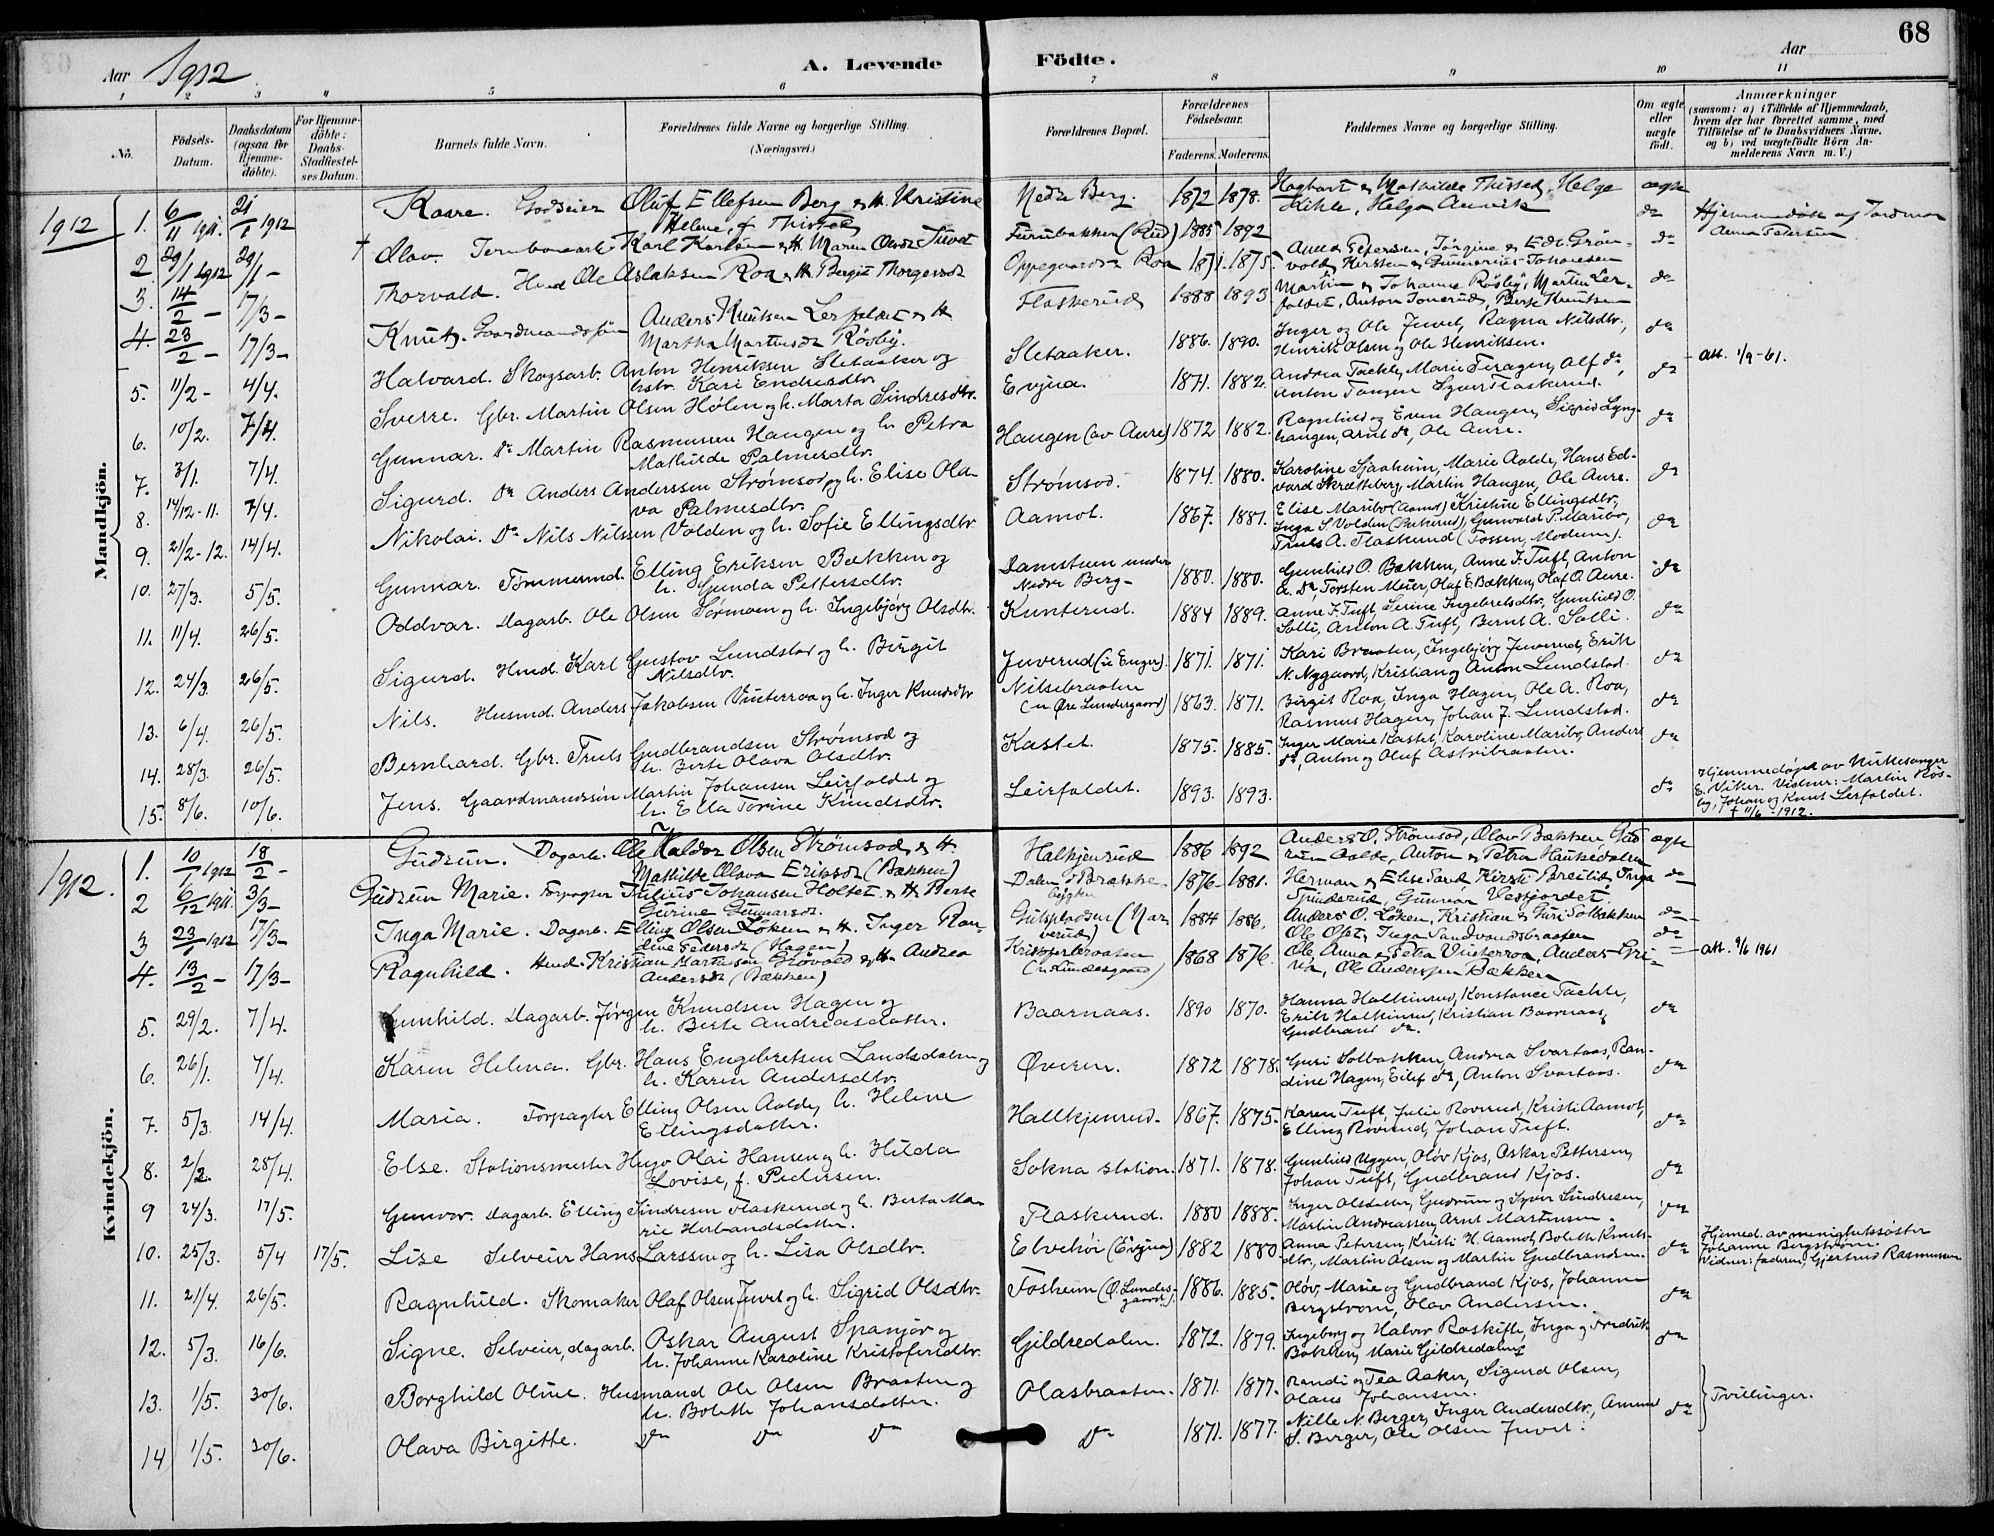 68
Aar 1912
A. Levende Födte.
Aar
1 2 3 4 5 6 7 8 9 10 11
No.
Födsels-Datum.
Daabsdatum (ogsaa for Hjemmedöbte).
For Hjemmedöbte: Daabs-Stadfæstelses Datum.
Barnets fulde Navn.
Forældrenes fulde Navne og borgerlige Stilling. (Næringsvei.)
Forældrenes Bopæl.
Forældrenes Födselsaar. Faderens. Moderens.
Faddernes Navne og borgerlige Stilling.
Om ægte eller uægte födt.
Anmærkninger (saasom: a) i Tilfælde af Hjemmedaab, hvem der har forrettet samme, med Tilföielse af to Daabsvidners Navne, og b) ved uægtefödte Börn Anmelderens Navn m. V.)
Mandkjön.
1912
1. 6/11 1911. 21/1 1912 Kaare. Godseier Oluf Ellefsen Berg og H. Kristine Helene f. Thisted Nedre Berg. 1872 1878. Hagbart og Mathilde Thisted, Helge Kihle, Helga ægte
2 29/1 1912 29/1 - † Olav. Karl Karlsen og H. Maren Olsdtr Juvet Furubakken (Rud) 1885 1892 do Hjemmedøbt af Jordmor Anna Petersen
3. 14/2 - 17/3 - Thorvald. Husmd Ole Aslaksen Roa og H. Bergit Thorgersdtr Oppegaards Roa 1871. 1875. Anna Petersen, Jørgine og Edv. Grønvold, Kersten og Gunnerius Johannesen do
4. 23/2 - 17/3 - Knut. Gaardmandssøn Anders Knutsen Lerfaldet og H. Martha Martinsdtr Røsby. Flaskerud 1888 1893 Martin og Johanne Røsby, Martin Lerfaldet, Anton Tonerud, Berte Knutsen do
5. 11/2 - 4/4. Halvard. Skogsarb. Anton Henriksen Sletaaker og hstr. Kari Endresdtr. Sletaaker. 1886. 1890. Inger og Ole Juvet, Ragna Nilsdtr., Henrik Olsen og Ole Henriksen. do Att. 1/9-61.
6. 10/2. 7/4. Sverre. Gbr. Martin Olsen Hølen og h. Marta Sindresdtr. Evjua. 1871. 1882. Andrea Tackle, Marie Feragen, Alf do, Anton Tangen, Syver Flaskerud. do
7. 3/1. 7/4. Gunnar. Do Martin Rasmussen Haugen og h. Petra Mathilde Palmesdtr. Haugen (av Aure) 1872 1882. Ragnhild og Even Haugen, Sigrid Lynghaugen, Arnt do, Ole Aure. do
8. 14/12-11. 7/4. Sigurd. Do Anders Anderssen Strømsod og h. Elise Olava Palmesdtr. Strømsod. 1874. 1880. Karoline Sjaaheim, Marie Aalde, Hans Edvard Skrætteberg, Martin Haugen, Ole Aure. do
9. 21/2-12. 14/4. Nikolai. Do Nils Nilssen Volden og h. Sofie Ellingsdtr. Aamot. 1867. 1881. Elise Maribo (Aamot), Kristine Ellingsdtr., Inga S. Volden, Gunvald P. Maribo, Truls A. Flaskerud (Fossen, Modum). do
10. 27/3. 5/5. Gunnar. Tømmermd. Elling Eriksen Bækken og h. Gunda Pettersdtr. Damstuen under Nedre Berg- 1880. 1880. Gunhild O. Bækken, Anne F. Tuft, Anton A. Do, Torsten Meier, Olaf E. Bækken, Olaf O. Aure. do
11. 11/4. 26/5. Oddvar. Dagarb. Ole Olsen Sørmoen og h. Ingebjørg Olsdtr. Knuterud. 1884 1889. Anne F. Tuft, Serine Ingebretsdtr., Gunhild O. Solli, Anton A. Tuft, Bernt A. Solli. do
12. 24/3. 26/5. Sigurd. Husmd. Karl Gustav Lundstad og h. Birgit Nilsdtr. Juverud (u Enger). 1871. 1871. Kari Braaten, Ingebjørg Juverud, Erik N. Nygaard, Kristian og Anton Lundstad. do
13. 6/4. 26/5. Nils. Husmd. Anders Jakobsen Vinterroa og h. Inger Knudsdtr Nilsebraaten (u Øre Lundesgaard) 1863. 1871. Birgit Roa, Inga Hagen, Ole A. Roa, Rasmus Hagen, Johan J. Lundstad. do
14. 28/3. 26/5. Bernhard. Gbr. Truls Gudbrandsen Strømsod og h. Berte Olava Olsdtr. Kastet. 1875. 1885. Inger Marie Kastet, Karoline Maribo, Anders do, Anton og Oluf Astribraaten. do
15. 8/6. 10/6. Jens. Gaardmandssøn Martin Johansen Leirfaldet og h. Ella Torine Knudsdtr. Leirfaldet. 1893. 1893. do Hjemmedøpt av Kirkesanger E. Viker. Vidner: Martin Røsby, Johan og Knut Lerfaldet. † 11/6-1912.
Kvindekjön.
1912.
1. 10/1 1912 18/2 - Gudrun. Dagarb. Ole Haldor Olsen Strømsod og H. Mathilde Olava Eriksdtr (Bækken) Halkjenrud 1886 1892 Anders O. Strømsod, Olav Bækken, Gudrun Aalde, Anton og Petra Haukedalen ægte
2 6/12 1911. 3/3 - Gudrun Marie. Forpagter Julius Johansen Holtet og H. Berte Gurine Gunnarsdtr. Dalen 1876- 1881. Herman og Elise Sand, Kirsti Brælid, Inga Trinderud, Gunnar Vestfjordet. do
3 23/1 1912 17/3 - Inga Marie. Dagarb. Elling Olsen Løken og H. Inger Randine Pedersdtr (Hagen) Gulspladsen (Narverud) 1884 1886. Anders O. Løken, Kristian og Guri Solbakken, Ole Olst, Inga Sandvandsbraaten do
4. 13/2 - 17/3 - Ragnhild. Husmd. Kristian Martinsen Grøvold og H. Andrea Andersdtr (Bækken) Kristofferbraaten (u Lundesgaard) 1868 1876. Ole, Anna og Petra Vinterroa, Anders Guriria, Ole Anderssen Bækken do Att. 9/6 1961
5. 29/2. 7/4. Gunhild. Dagarb. Jørgen Knudsen Hagen og h. Berte Andreasdatter. Baarnaas. 1890 1870. Hanna Halkinrud, Konstance Tackle, Erik Halkinrud, Kristian Baarnaas, Gudbrand do. do
6. 26/1. 7/4. Karen Helena. Gbr. Hans Engebretsen Landsdalen og h. Karen Andersdtr. Øveren. 1872 1878. Guri Solbakken, Andrea Svartaas, Randine Hagen, Eilef do, Anton Svartaas. do
7. 5/3. 14/4. Maria. Forpagter Elling Olsen Aalde, h. Helene Ellingsdatter. Hallkjenrud. 1867. 1875. Karen Tuft, Julie Roverud, Kristi Aamot, Elling Roverud, Johan Tuft. do
8. 2/2. 28/4. Else. Stationsmester Hugo Olai Hansen og h. Hilda Lovise, f. Pedersen. Sokna station. 1871. 1878. Gunhild Uggen, Oløv Kjos, Oskar Pettersen, Johan Tuft, Gudbrand Kjos. do
9 24/3. 17/5. Gunvor. Dagarb. Elling Sindresen Flaskerud og h. Berta Marie Herbrandsdatter. Flaskerud. 1880 1888. Inger Olsdatter, Gudrun og Syver Sindresen, Martin Andreassen, Arnt Martinsen. do
10. 25/3. 5/4 17/5. Lise Selveier Hans Larssen og h. Lisa Olsdtr. Elvehøi (Evjua) 1882 1880 Anna Petersen, Kristi H. Aamot, Boleth Knutsdtr., Martin Olsen og Martin Gudbrandsen. do Hjemmed. av menighetssøster Johanne Bergstrøm. Vidner: faderen, Gjertrud Rasmussen
11. 21/4. 26/5. Ragnhild. Skomaker Olaf Olsen Juvet og h. Sigrid Olsdtr. Fosheim (Ø. Lundesgaard). 1886. 1885. Oløv, Marie og Gudbrand Kjos, Johanne Bergstrøm, Olav Andersen. do
12. 5/3. 16/6. Signe. Selveier, dagarb. Oskar August Spanjor og h. Johanne Karoline Kristofersdtr. Gildredalen. 1872. 1879. Ingeborg og Halvor Roskifte, Inga og Fredrik Bakken, Marie Gildredalen. do
13. 1/5. 30/6. Borghild Oline. Husmand Ole Olsen Braaten og h. Boletta Johansdatter. Olasbraaten. 1871. 1877. Randi og Tea Aaker, Sigurd Olsen, Olaus Johansen. do Tvillinger.
14 1/5. 30/6. Olava Birgitte. do do do do 1871. 1877. Nille N. Berger, Inger Andersdtr., Ammund S. Berger, Ole Olsen Juvet.